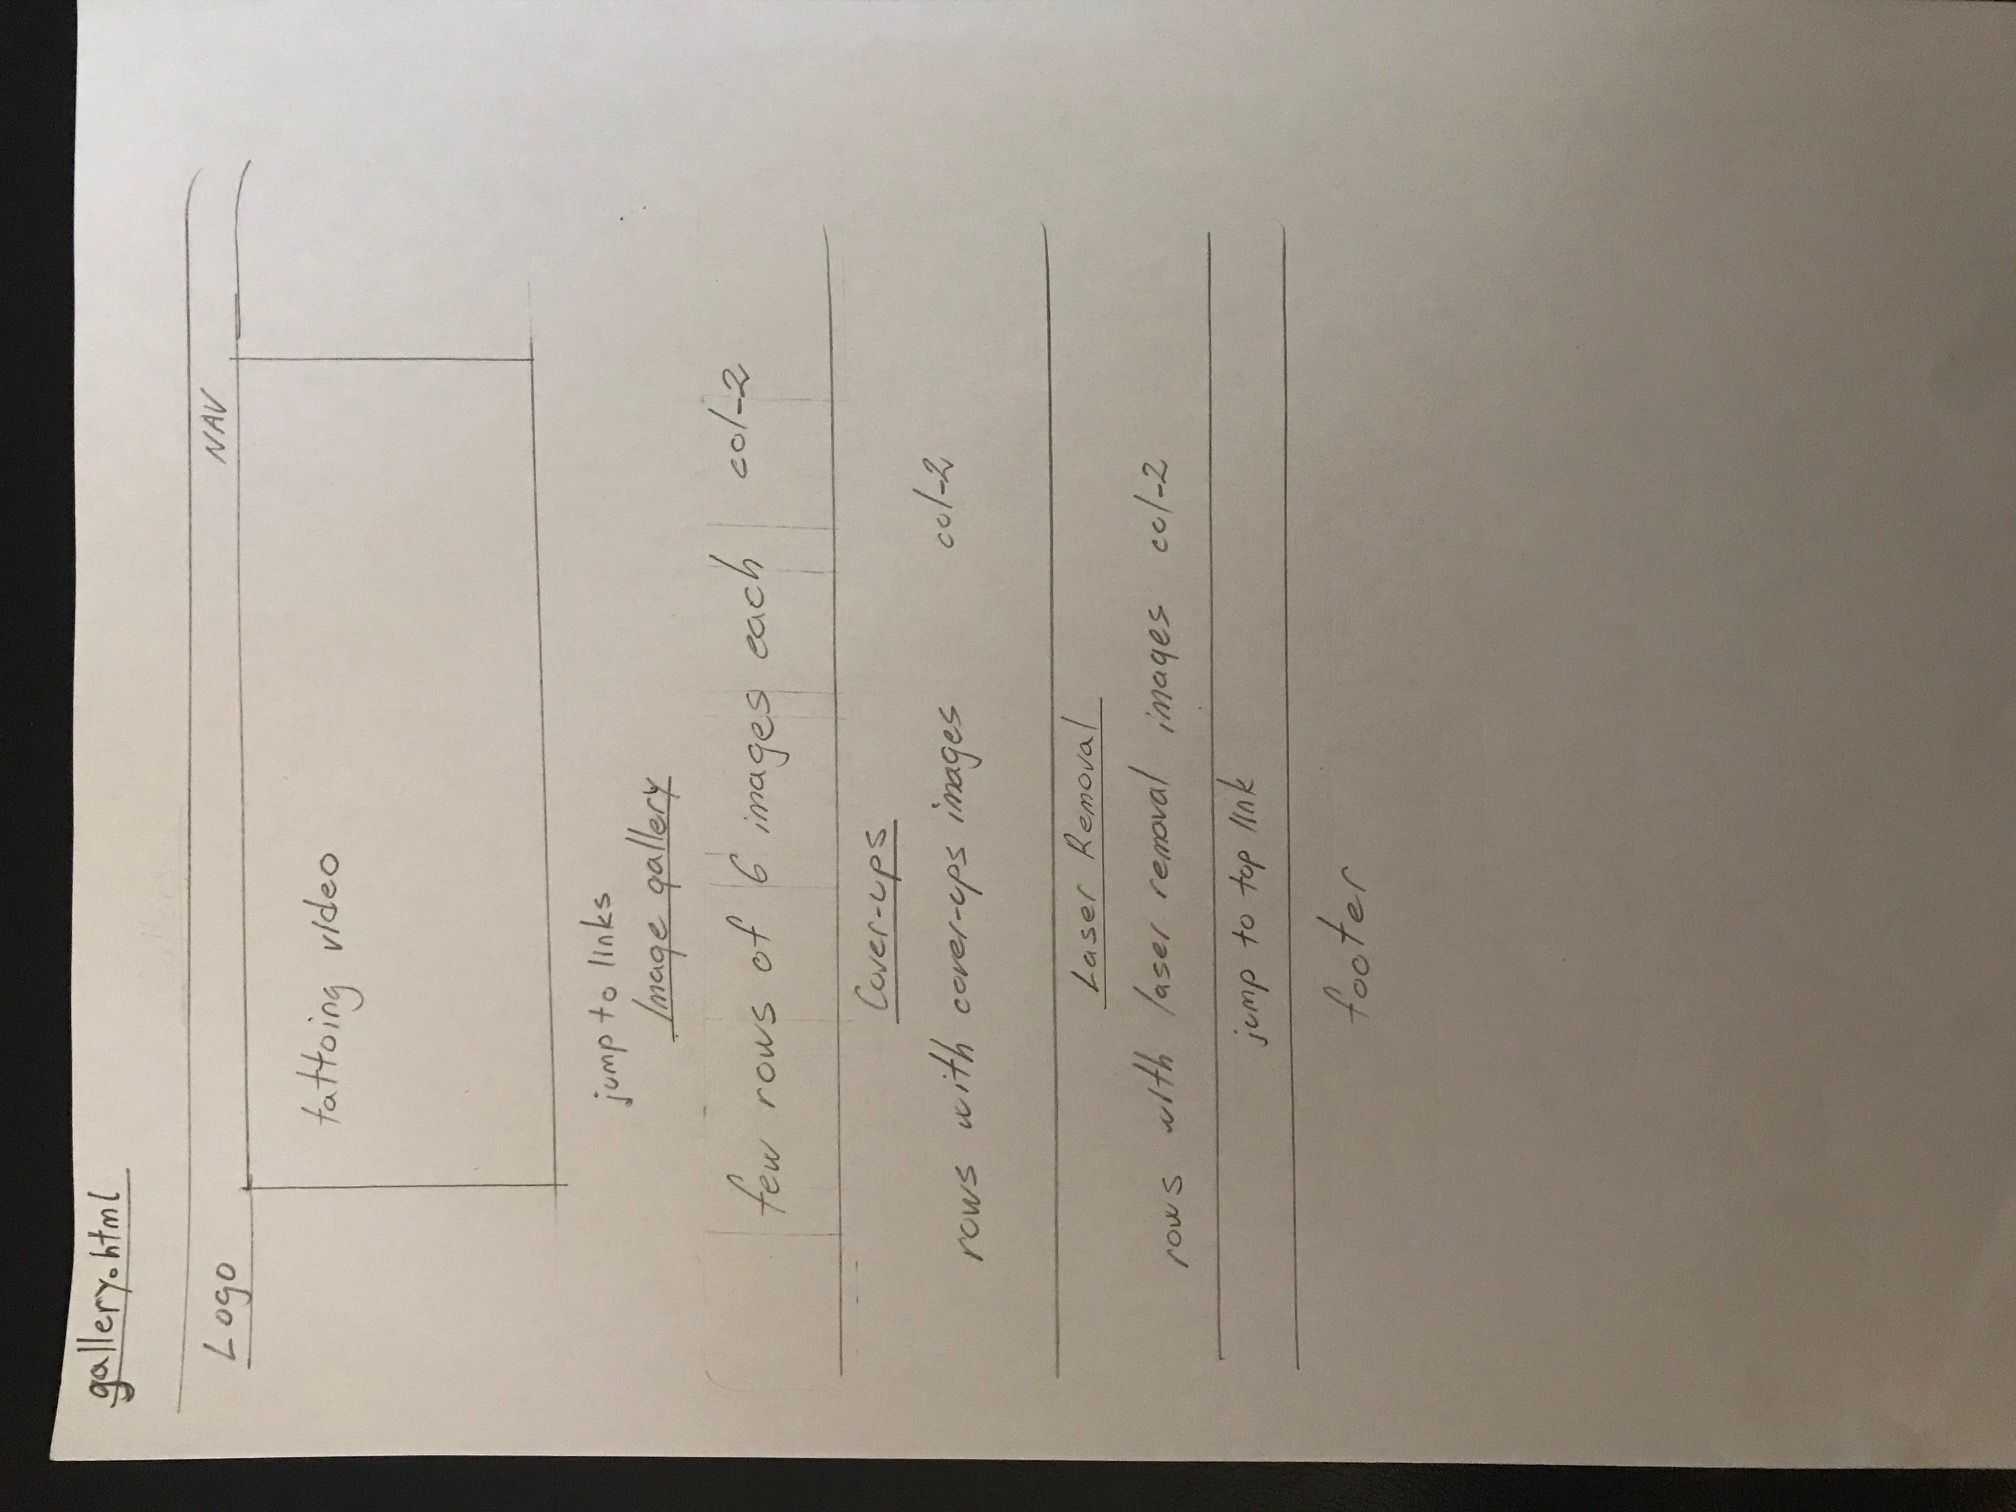 gallery.html
Logo NAV
tattoing video
jump to links
Image gallery
few rows of 6 images each col-2
Cover-ups
rows with cover-ups images col-2
Laser Removal
rows with laser removal images col-2
jump to top link
footer